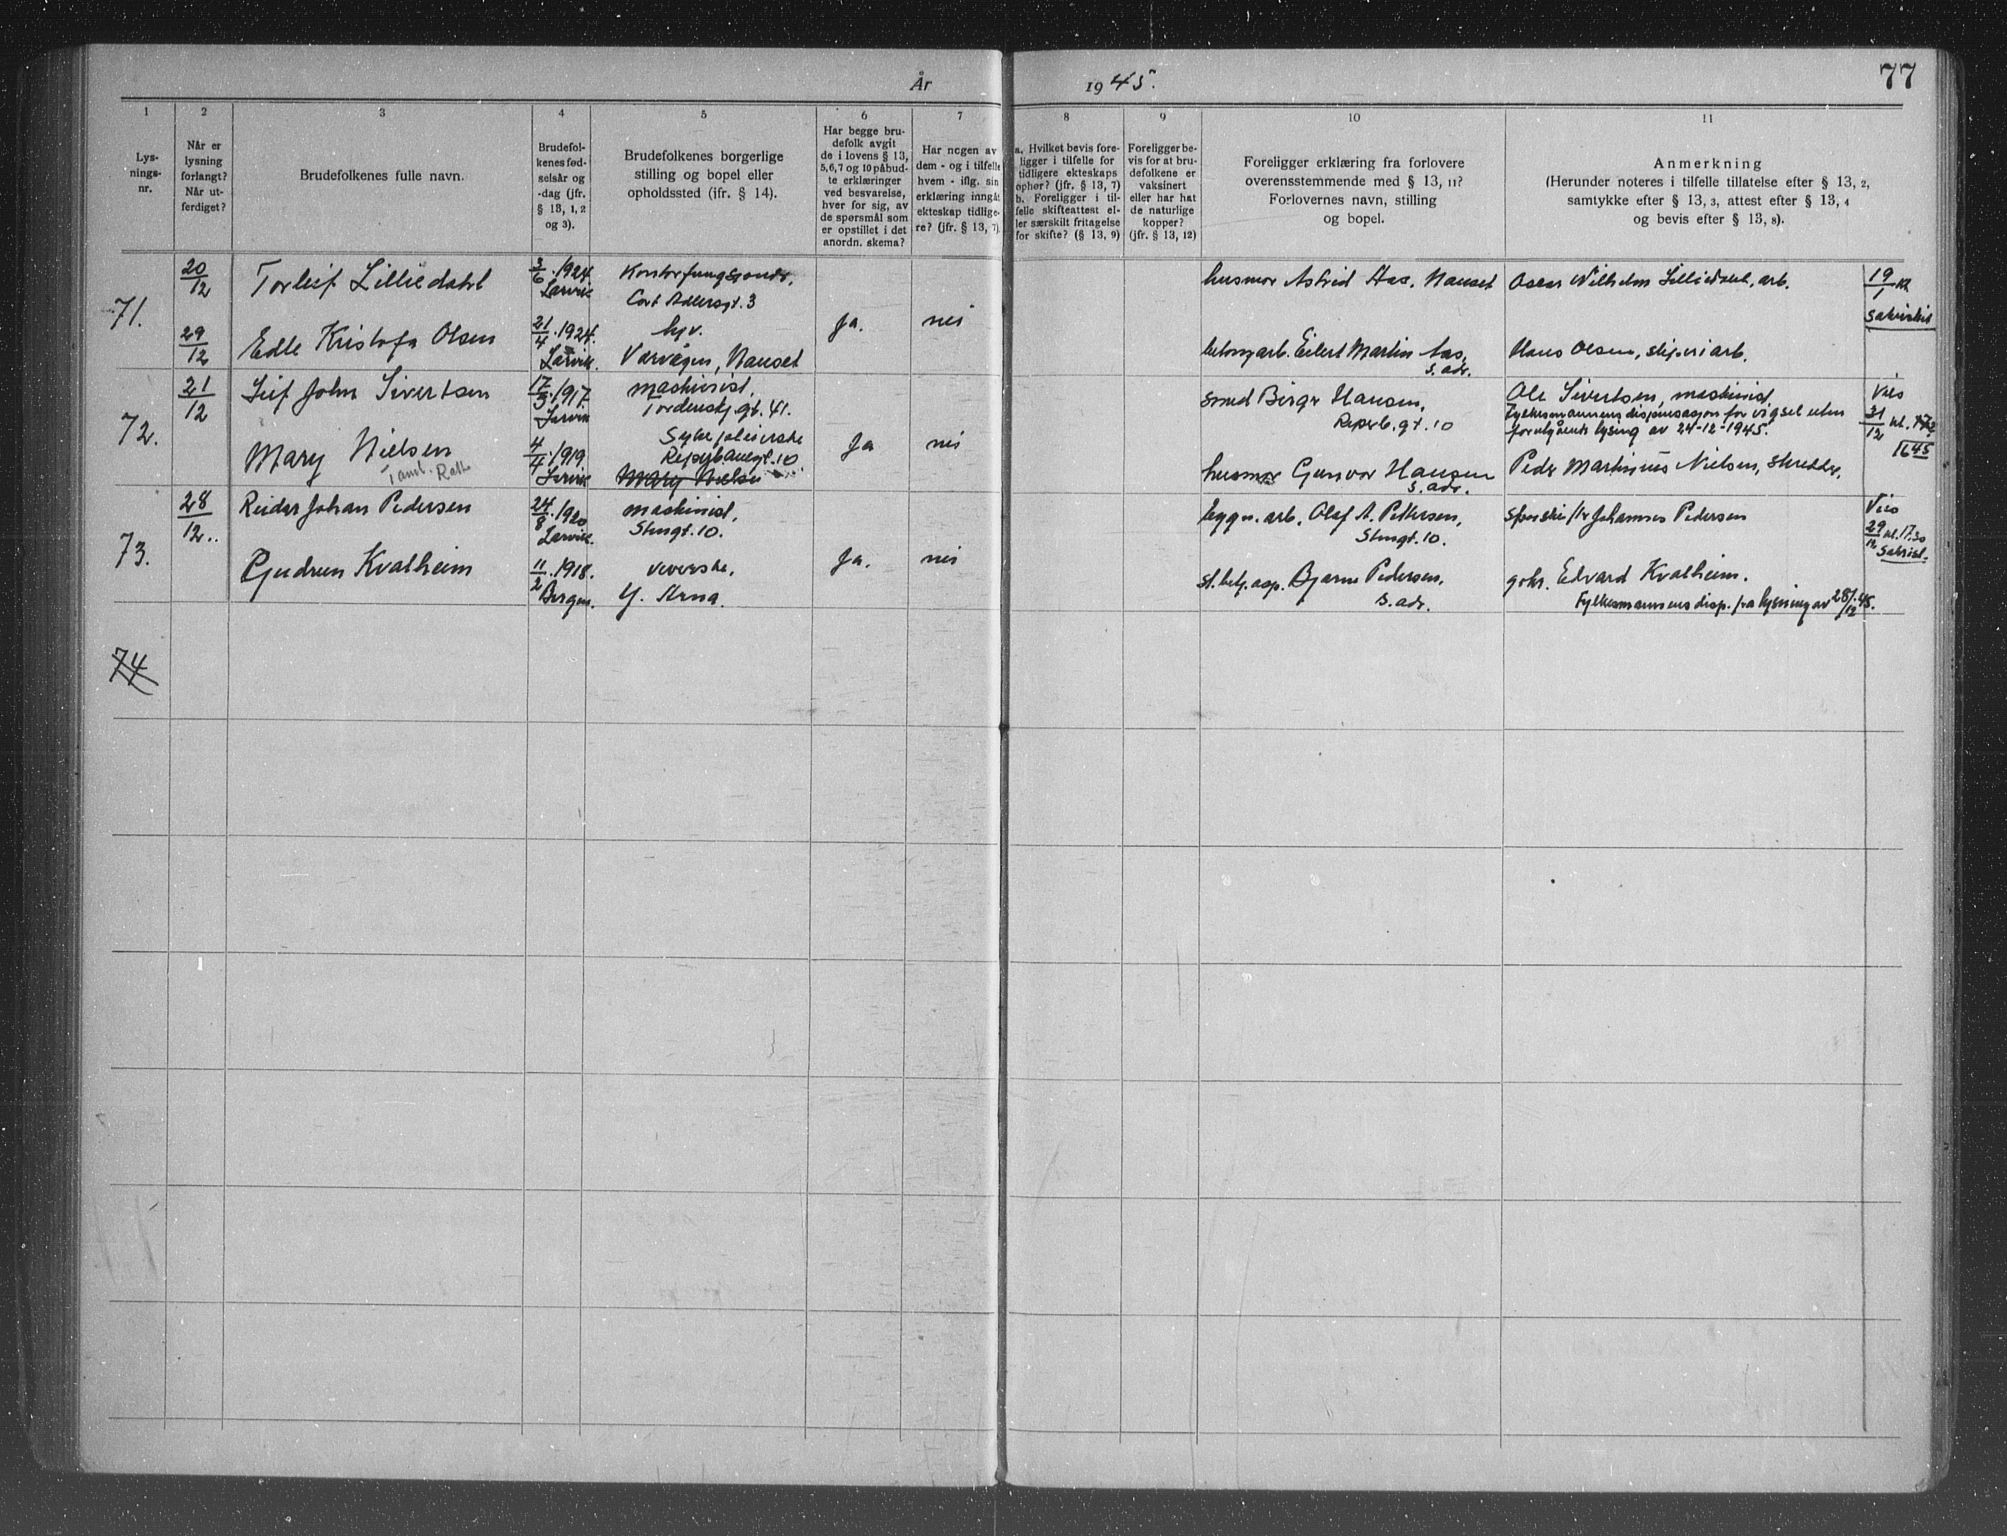 År 1945.
77
1
2
3
4
5
6
7
8
9
10
11
Lys-
nings-
nr.
Når er
lysning
forlangt?
Når ut-
ferdiget?
Brudefolkenes fulle navn.
Brudefol-
kenes fød-
selsår og
-dag (jfr.
§ 13, 1, 2
og 3).
Brudefolkenes borgerlige
stilling og bopel eller
opholdssted (jfr. § 14).
Har begge bru-
defolk avgit
de i lovens § 13,
5,6,7 og 10 påbud-
te erklæringer
ved besvarelse,
hver for sig, av
de spørsmål som
er opstillet i det
anordn. skema?
Har nogen av
dem - og i tilfelle
hvem - iflg. sin
erklæring inngåt
ekteskap tidlige-
re? (jfr. § 13, 7).
a. Hvilket bevis fore-
ligger i tilfelle for
tidligere ekteskaps
ophør? (jfr. § 13, 7)
b. Foreligger i til-
felle skifteattest el-
ler særskilt fritagelse
for skifte? (§ 13, 9)
Foreligger be-
vis for at bru-
defolkene er
vaksinert
eller har hat
de naturlige
kopper?
(jfr. § 13, 12)
Foreligger erklæring fra forlovere
overensstemmende med § 13, 11?
Forlovernes navn, stilling
og bopel.
Anmerkning
(Herunder noteres i tilfelle tillatelse efter § 13, 2,
samtykke efter § 13, 3, attest efter § 13, 4
og bevis efter § 13, 8).
71.
20/12
29/12
Torleif Lilliedahl
Edle Kristofa Olsen
3/6.1924.
Larvik
21/4.1924.
Larvik.
Cort Adlersgt. 3
hjv.
Varvegen, Nanset
Ja.
nei
husmor Astrid Aas, Nanset
betongarb. Eilert Martin Aas,
s. adr.
Oscar Wilhelm Lilliedahl, arb.
Hans Olsen, sliperiarb.
19/1 kl
sakristiet
72.
21/12
Leif John Sivertsen
Mary Nielsen
17/3.1917.
Larvik
4/4.1919.
Larvik
maskinist,
Tordenskj.gt. 41.
Sykepleierske
Reperbanegt. 10
Mary Nielsen
Ja
nei
smed Birger Hansen,
Reperb.gt. 10
husmor Gunvor Hansen
s. adr.
Ole Sivertsen, maskinist
Fylkesmannens dispensasjon for vigsel uten
foregående lysing av 24-12-1945.
Peder Martinius Nielsen, skredder,
Vies
31/12 kl. 17
1645
73.
28/12..
Reidar Johan Pedersen
Gudrun Kvalheim
24/8.1920
Larvik.
11/2.1918.
Bergen.
maskinist,
Stengt. 10.
veverske,
Y. Arna.
Ja.
nei
bygn. arb. Olaf A. Pettersen,
Stengt. 10.
st.betj.asp. Bjarne Pedersen.
s. adr.
Johannes Pedersen
gbr. Edvard Kvalheim.
Fylkesmannens disp. fra lysning av 28/12.45.
Vies
29/12 kl. 17.30
Sakrist.
74